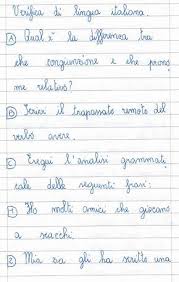 Verifica di lingua italiana.
A Qual è la differenza tra
che congiunzione e che prono
me relativo?
B Scrivi il trapassato remoto del
verbo avere.
C Esegui l'analisi grammati
cale delle seguenti frasi:
1 Ho molti amici che giocano
a scacchi.
2 Mia sa gli ha scritto una